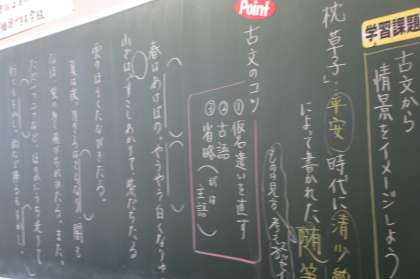 学習課題
古文から
情景をイメージしよう
枕草子
平安時代に清少
によって書かれた随筆
ものの見方 考え
Point
古文のコツ
①仮名遣いを直す
②古語
③省略
主語
春はあけぼの。やうやう白くなりゆ
山ぎは、すこしあかりて、紫だちたる
雲のほそくたなびきたる。
夏は夜。月のころはさらなり。闇も
なほ、蛍の多く飛びちがひたる。また、
ただ一つ二つなど、ほのかにうち光りて
行くもをかし。雨など降るもをかし。